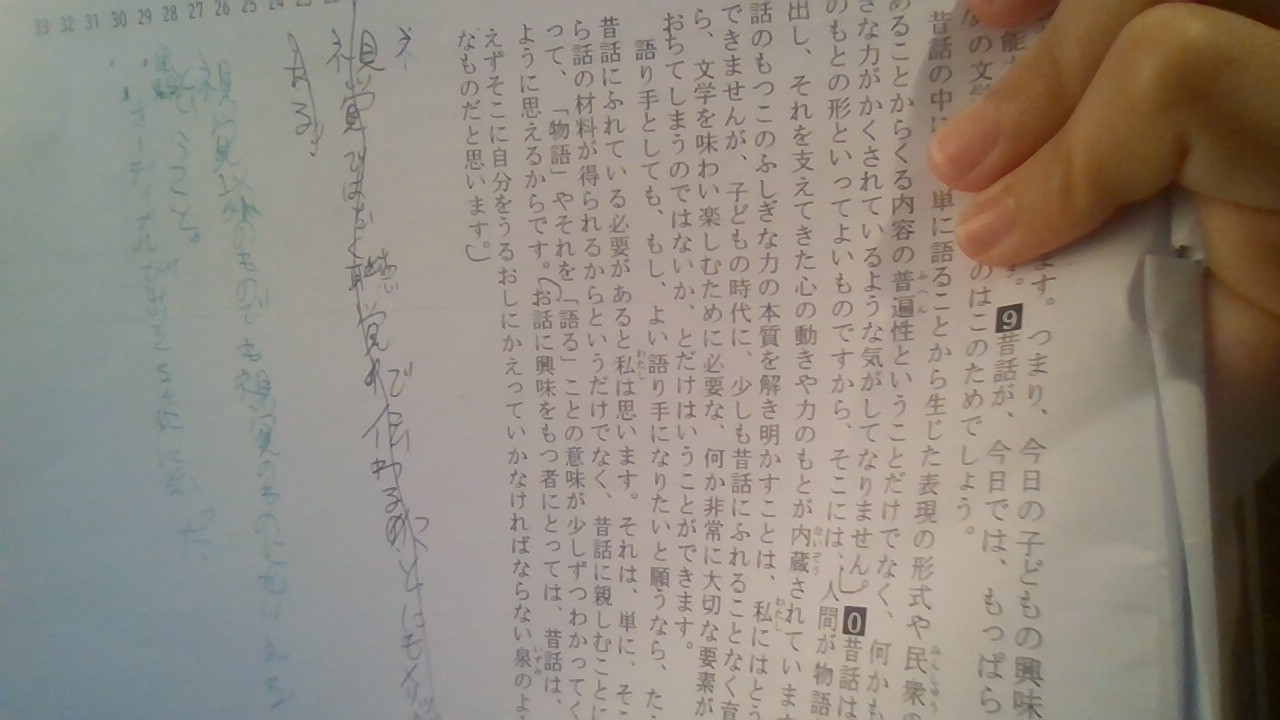 ます。つまり、今日の子どもの興味
能
す。9昔話が、今日では、もっぱら
の文学
のはこのためでしょう。
昔話の中に
単に語ることから生じた表現の形式や民衆の
みんしゅう
あることからくる内容の普遍性ということだけでなく、何かも
ふへん
きな力がかくされているような気がしてなりません。0昔話は
のもとの形といってよいものですから、そこには、人間が物語
出し、それを支えてきた心の動きや力のもとが内蔵されています
ないぞう
話のもつこのふしぎな力の本質を解き明かすことは、私にはとう
わたし
できませんが、子どもの時代に、少しも昔話にふれることなく育
ら、文学を味わい楽しむために必要な、何か非常に大切な要素が
おちてしまうのではないか、とだけはいうことができます。
語り手としても、もし、よい語り手になりたいと願うなら、たえ
昔話にふれている必要があると私は思います。それは、単に、そこ
わたし
ら話の材料が得られるからというだけでなく、昔話に親しむことに
って、「物語」やそれを「語る」ことの意味が少しずつわかってく
ように思えるからです。お話に興味をもつ者にとっては、昔話は、
えずそこに自分をうるおしにかえっていかなければならない泉のよ
いずみ
なものだと思います。
視覚ではなく聴覚で伝わるの
ある。
視覚以外のものでも視覚のものに
ということ。
33 32 31 30 29 28 27 26 25 24 23